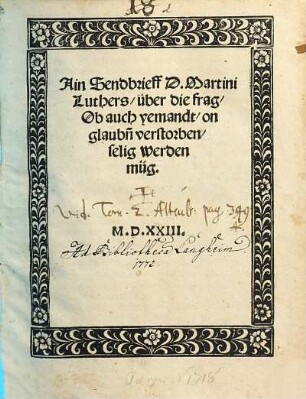 18
Ain Sendbrieff D. Martini
Luthers/ über die frag/
Ob auch yemandt/ on
glaubñ verstorben/
selig werden
müg.
vid. Tom. 2. Altenb. pag. 349
M.D.XXIII.
Ad Bibliothecā Langheim